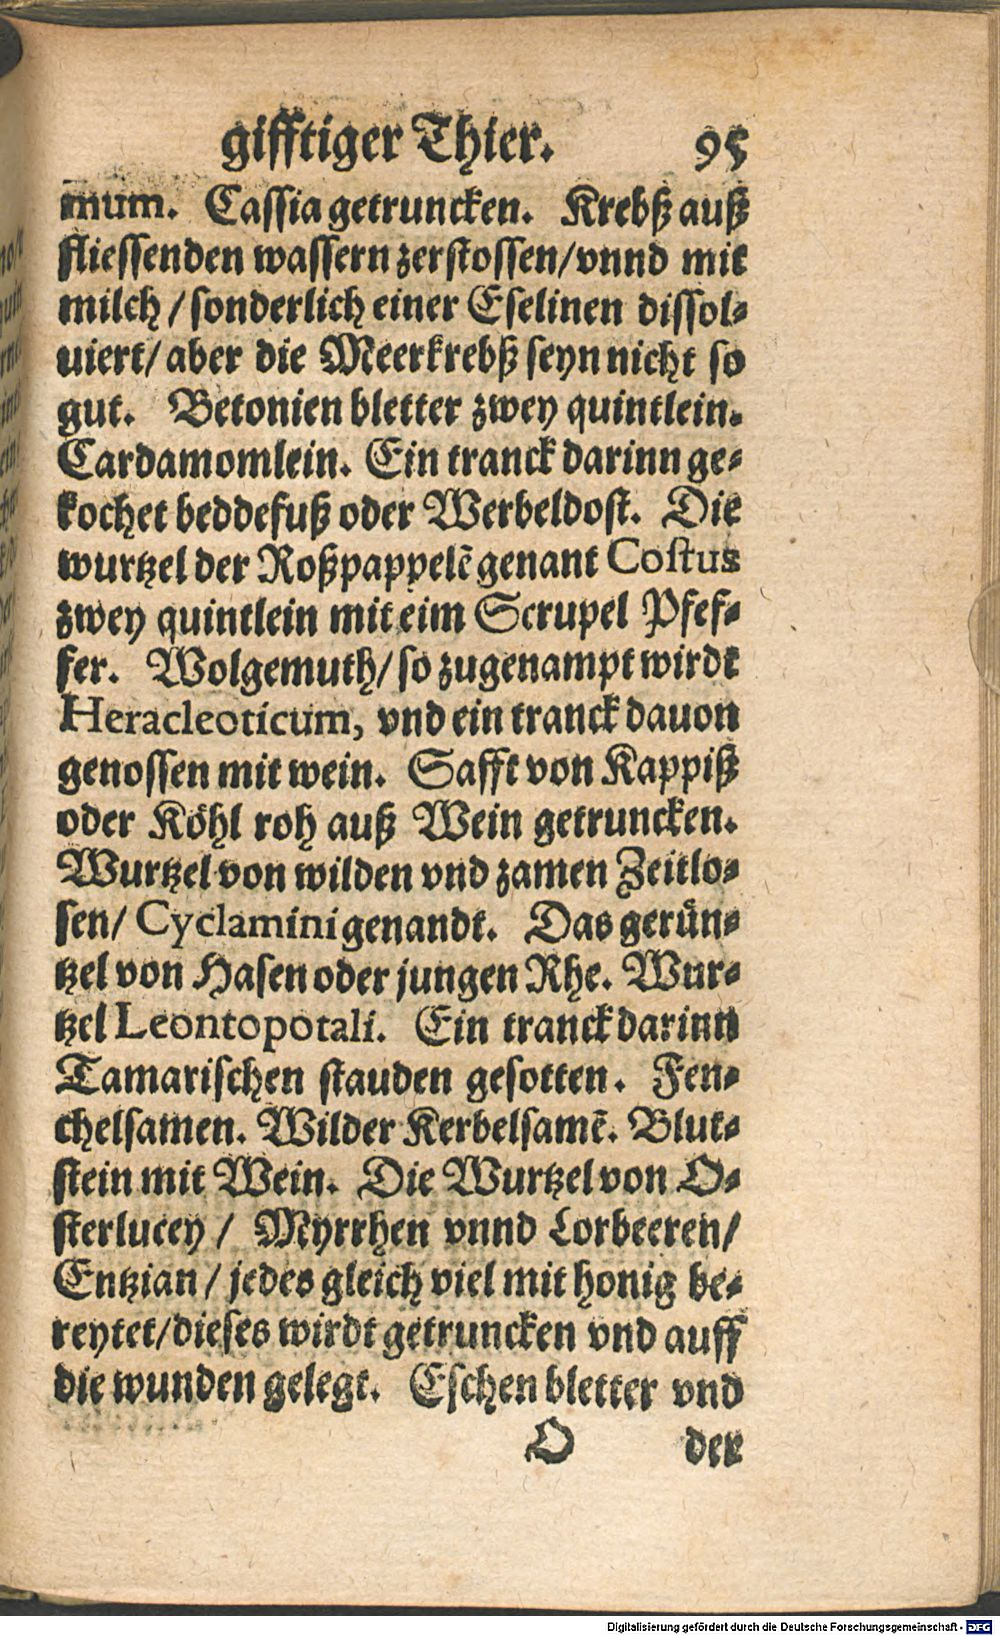 gifftiger Thier. 95
mum. Cassia getruncken. Krebß auß
fliessenden wassern zerstossen/vnnd mit
milch/sonderlich einer Eselinen dissol⸗
uiert/aber die Meerkrebß seyn nicht so
gut. Betonien bletter zwey quintlein.
Cardamomlein. Ein tranck darinn ge⸗
kochet beddefuß oder Werbeldost. Die
wurtzel der Roßpappelē genant Costus
zwey quintlein mit eim Scrupel Pfef⸗
fer. Wolgemuth/so zugenampt wirdt
Heracleoticum, vnd ein tranck dauon
genossen mit wein. Safft von Kappiß
oder Köhl roh auß Wein getruncken.
Wurtzel von wilden vnd zamen Zeitlo⸗
sen/Cyclamini genandt. Das gerün⸗
tzel von Hasen oder jungen Rhe. Wur⸗
tzel Leontopotali. Ein tranck darinn
Tamarischen stauden gesotten. Fen⸗
chelsamen. Wilder Kerbelsamē. Blut⸗
stein mit Wein. Die Wurtzel von O⸗
sterlucey/ Myrrhen vnnd Lorbeeren/
Entzian/jedes gleich viel mit honig be⸗
reytet/dieses wirdt getruncken vnd auff
die wunden gelegt. Eschen bletter vnd
O der
Digitalisierung gefördert durch die Deutsche Forschungsgemeinschaft - DFG